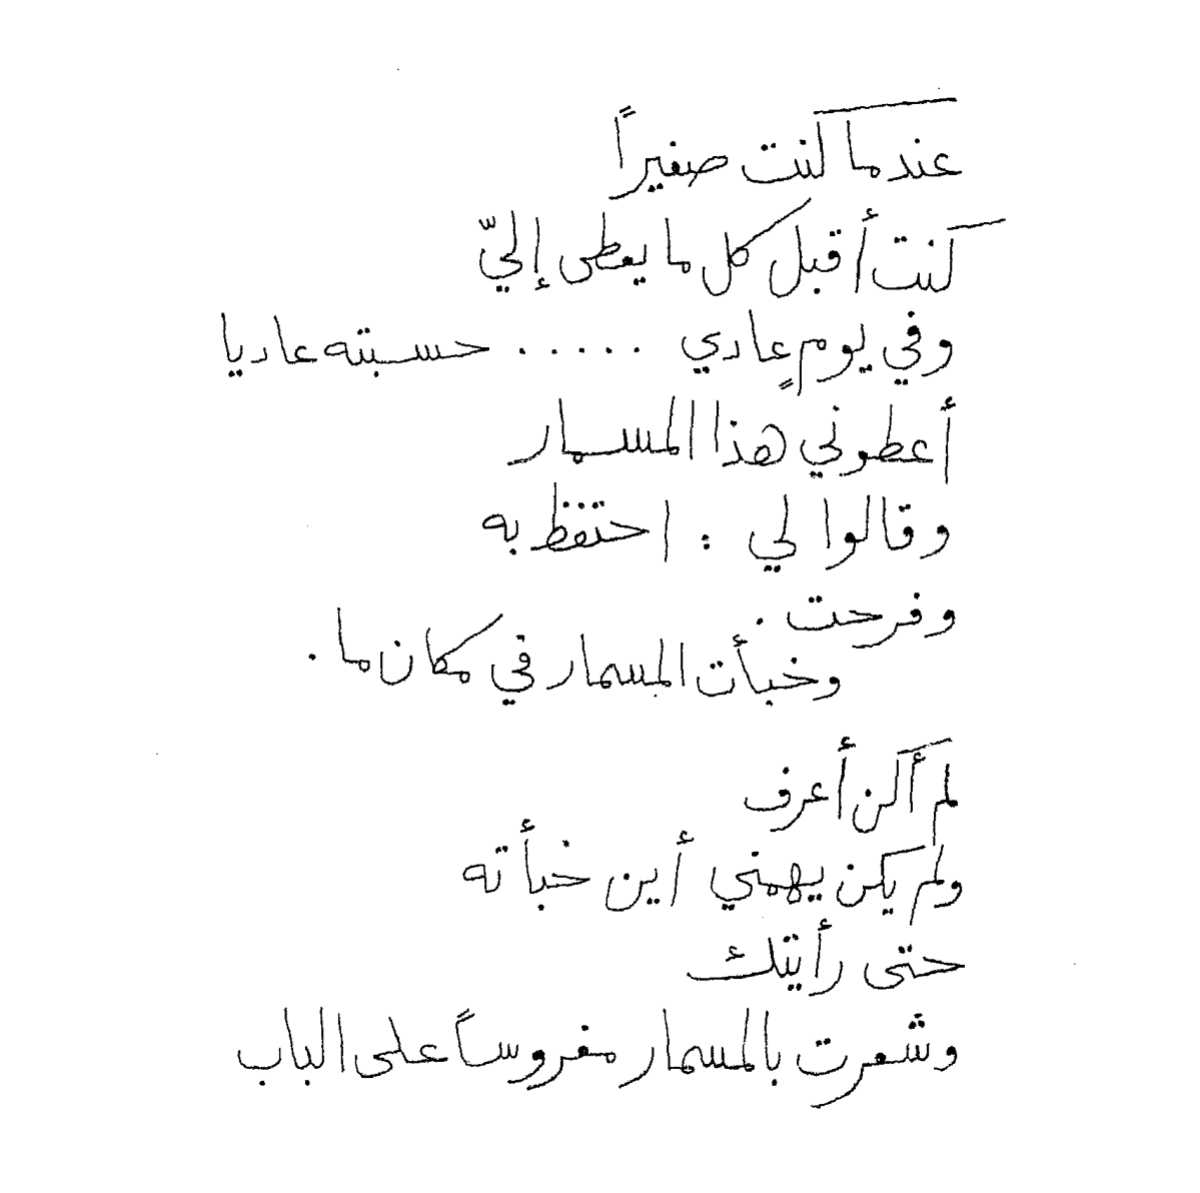 عندما كنت صغيراً
كنت أقبل كل ما يعطى إليّ
وفي يومٍ عادي ..... حسبته عاديا
أعطوني هذا المسمار
وقالوا لي : احتفظ به
وفرحت .
وخبأت المسمار في مكان ما .
لم أكن أعرف
ولم يكن يهمني أين خبأته
حتى رأيتك
وشعرت بالمسمار مغروساً على الباب